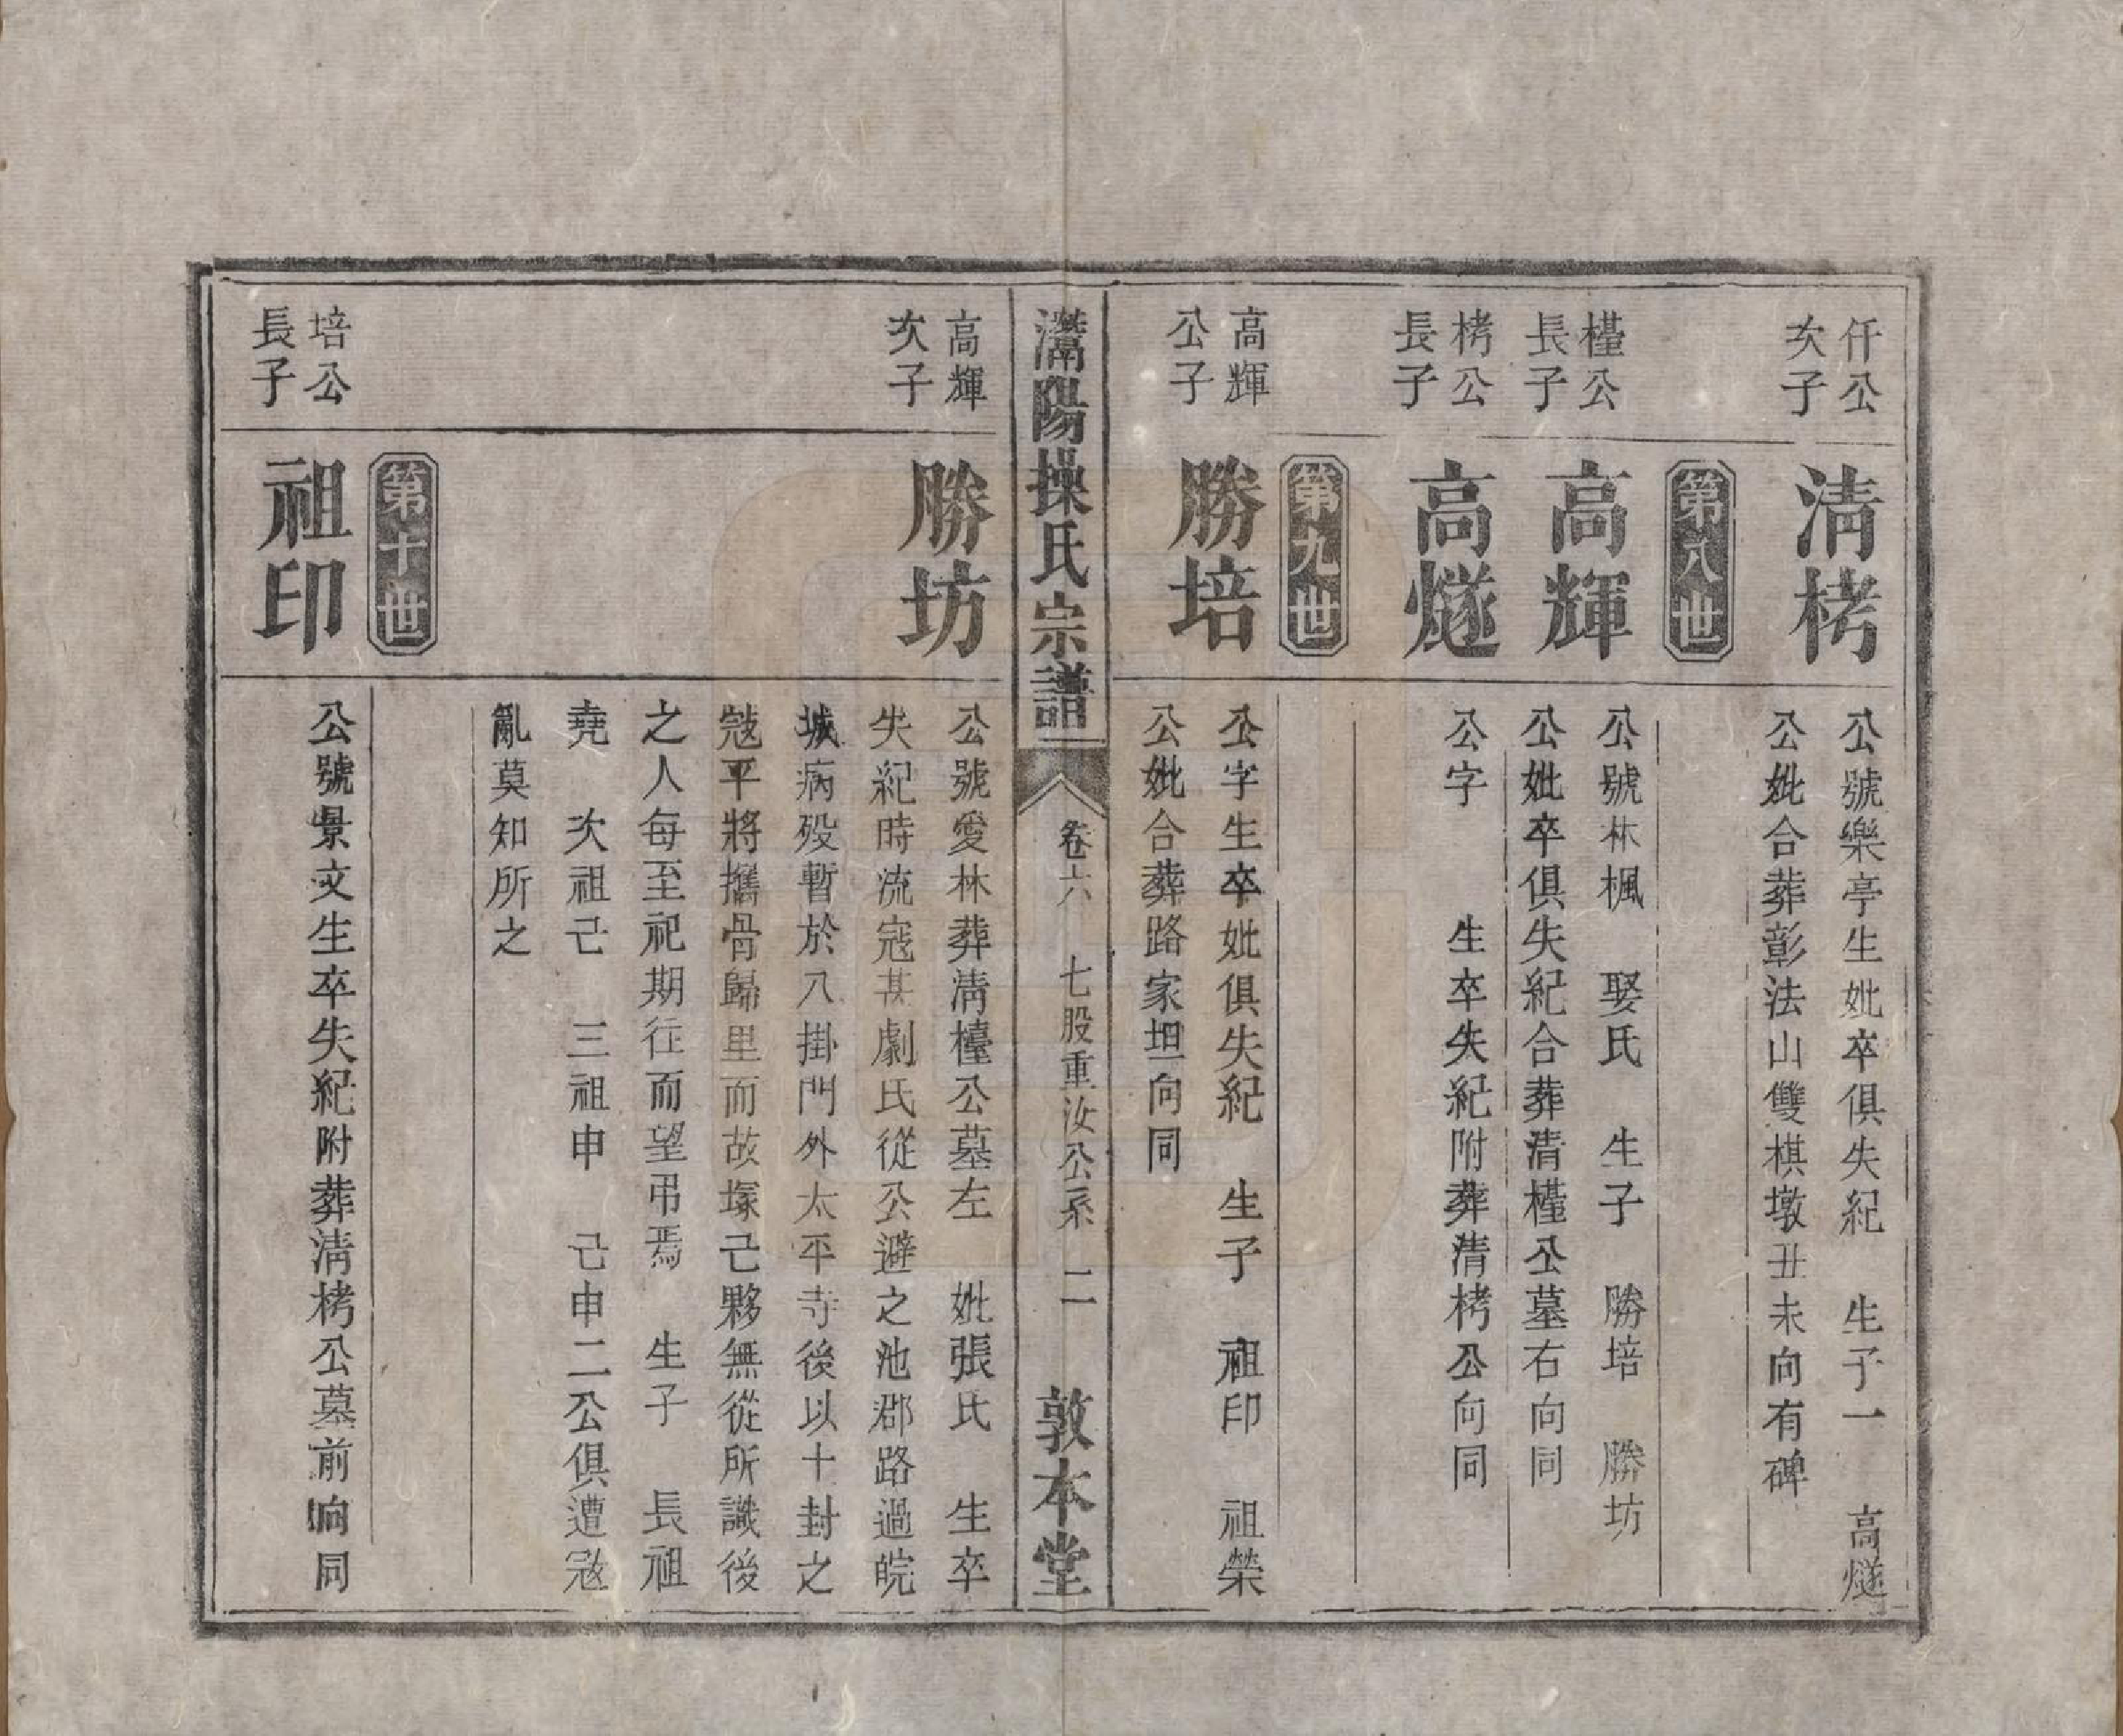 仟公
次子
清栲
公號樂亭生妣卒俱失紀　生子一　高燧
公妣合葬彰法山雙棋墩丑未向有碑
第八世
檯公
長子
高輝
公號林楓　娶氏　生子　勝培　勝坊
公妣卒俱失紀合葬清檯公墓右向同
栲公
長子
高燧
公字　　生卒失紀附葬清栲公向同
第九世
高輝
公子
勝培
公字生卒妣俱失紀　生子　祖印　祖榮
公妣合葬路家坦向同
灊陽操氏宗譜
卷六　七股重汝公系　二
敦本堂
高輝
次子
勝坊
公號愛林葬清檯公墓左　妣張氏　生卒
失紀時流寇甚劇氏從公避之池郡路過皖
城病歿暫於八掛門外太平寺後以十封之
寇平將攜骨歸里而故塚已夥無從所識後
之人每至祀期往而望弔焉　生子　長祖
堯　次祖己　三祖申　己申二公俱遭寇
亂莫知所之
第十世
培公
長子
祖印
公號景文生卒失紀附葬清栲公墓前向同